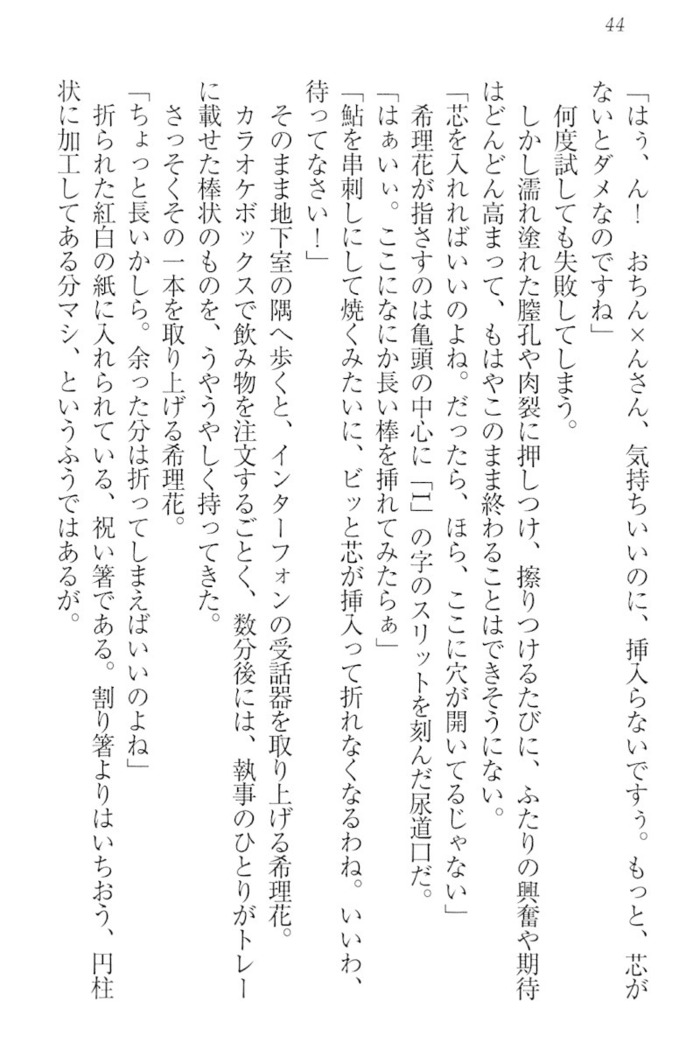 44
「はぅ、ん！　おちん×んさん、気持ちいいのに、挿入らないですぅ。もっと、芯が
ないとダメなのですね」
何度試しても失敗してしまう。
しかし濡れ塗れた膣孔や肉裂に押しつけ、擦りつけるたびに、ふたりの興奮や期待
はどんどん高まって、もはやこのまま終わることはできそうにない。
「芯を入れればいいのよね。だったら、ほら、ここに穴が開いてるじゃない」
希理花が指さすのは亀頭の中心に「Ｉ」の字のスリットを刻んだ尿道口だ。
「はぁいぃ。ここになにか長い棒を挿れてみたらぁ」
「鮎を串刺しにして焼くみたいに、ビッと芯が挿入って折れなくなるわね。いいわ、
待ってなさい！」
そのまま地下室の隅へ歩くと、インターフォンの受話器を取り上げる希理花。
カラオケボックスで飲み物を注文するごとく、数分後には、執事のひとりがトレー
に載せた棒状のものを、うやうやしく持ってきた。
さっそくその一本を取り上げる希理花。
「ちょっと長いかしら。余った分は折ってしまえばいいのよね」
折られた紅白の紙に入れられている、祝い箸である。割り箸よりはいちおう、円柱
状に加工してある分マシ、というふうではあるが。